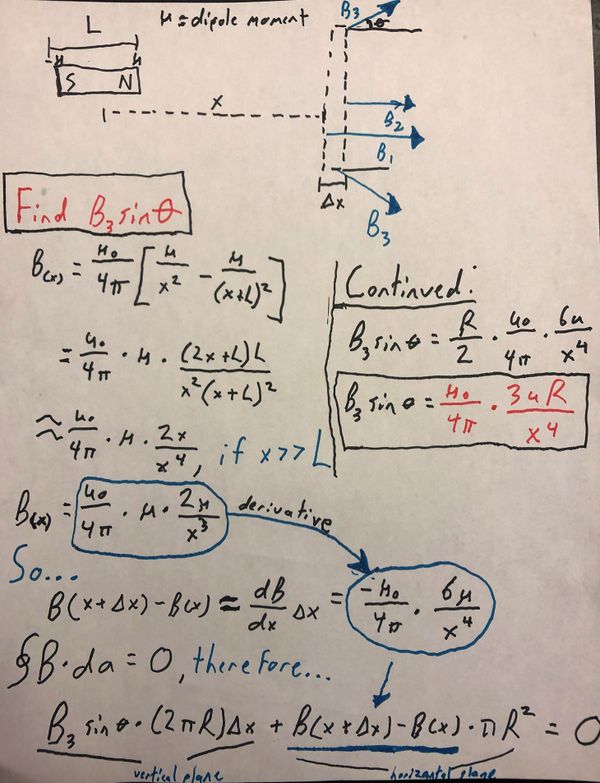 L
μ = dipole moment
-μ μ
S N
x
B₃
θ
B₂
B₁
B₃
Δx
Find B₃ sin θ
B(x) = μ₀/4π [μ/x² - μ/(x+L)²]
= μ₀/4π · μ · (2x+L)L/x²(x+L)²
≈ μ₀/4π · μ · 2x/x⁴, if x>>L
B(x) = μ₀/4π · μ · 2μ/x³
derivative
So...
B(x+Δx)-B(x) ≈ dB/dx Δx = -μ₀/4π · 6μ/x⁴
∮B·da = 0, therefore...
B₃ sin θ · (2πR)Δx + B(x+Δx)-B(x) · πR² = 0
vertical plane horizontal plane
Continued:
B₃ sin θ = R/2 · μ₀/4π · 6μ/x⁴
B₃ sin θ = μ₀/4π · 3μR/x⁴